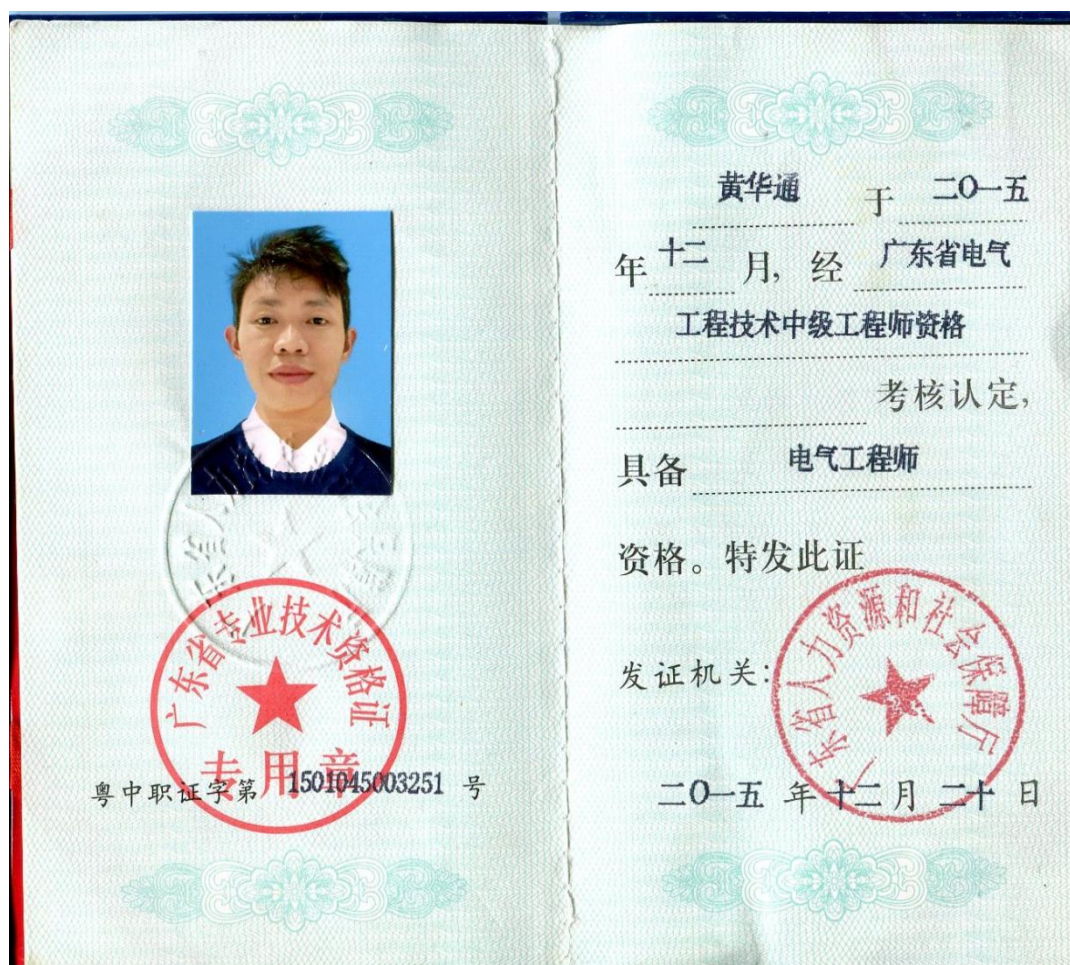 广东省专业技术资格证
专用章
粤中职证字第 1501045003251 号
黄华通 于 二O一五
年 十二 月, 经 广东省电气
工程技术中级工程师资格
考核认定,
具备 电气工程师
资格。特发此证
发证机关:
广东省人力资源和社会保障厅
二O一五 年 十二 月 二十 日